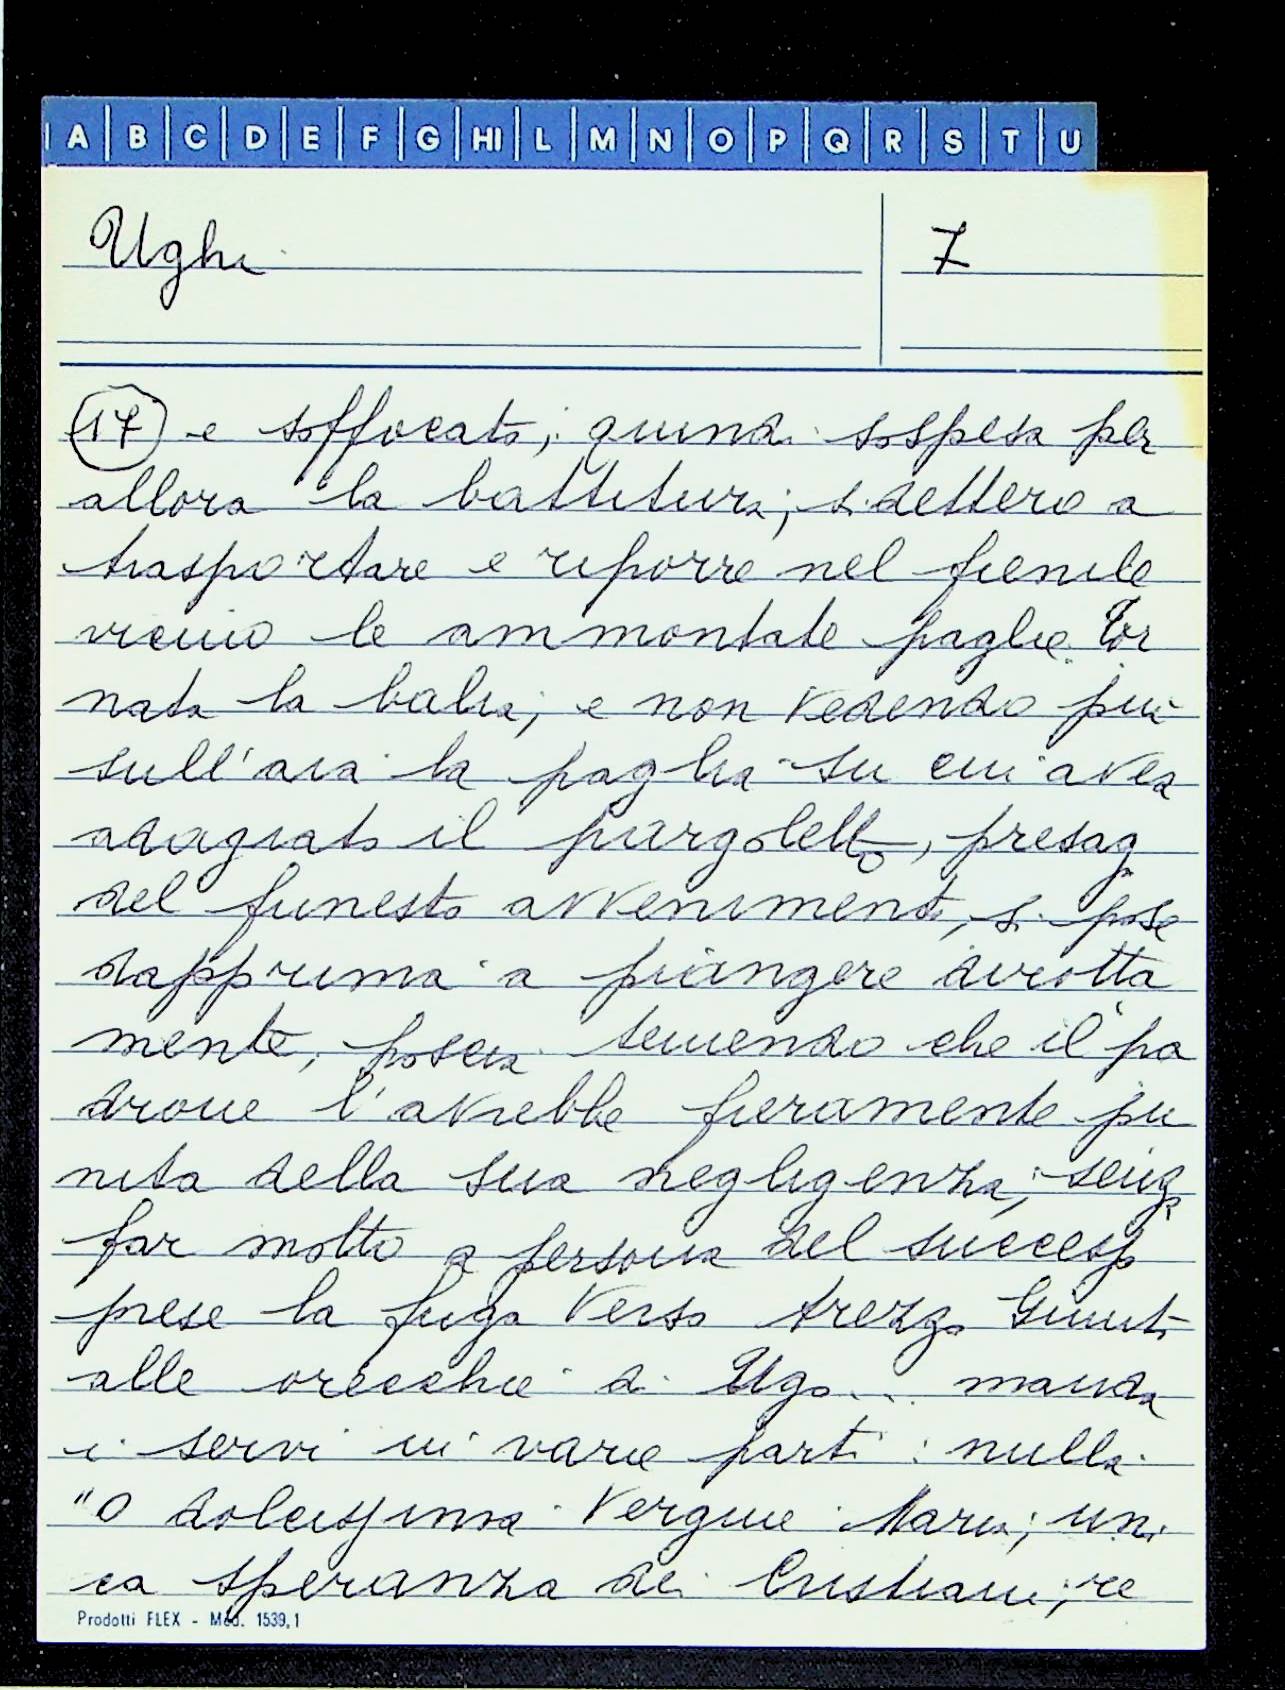 A B C D E F G HI L M N O P Q R S T U
Ughi 7
17 e soffocato; quindi sospesa per
allora la battitura; si dettero a
trasportare e riporre nel fienile
vicino le ammontate paglie. Tor
nata la balia; e non vedendo più
sull'aia la paglia su cui avea
adagiato il pargoletto, presaga
del funesto avvenimento, si pose
dapprima a piangere dirotta
mente, poscia temendo che il pa
drone l'avrebbe fieramente pu
nita della sua negligenza; senza
far motto a persona del successo
prese la fuga verso Arezzo Giunto
alle orecchie di Ugo... manda
i servi in varie parti: nulla.
"O dolcissima Vergine Maria; uni
ca speranza dei Cristiani; re
Prodotti FLEX - Mod. 1539,1